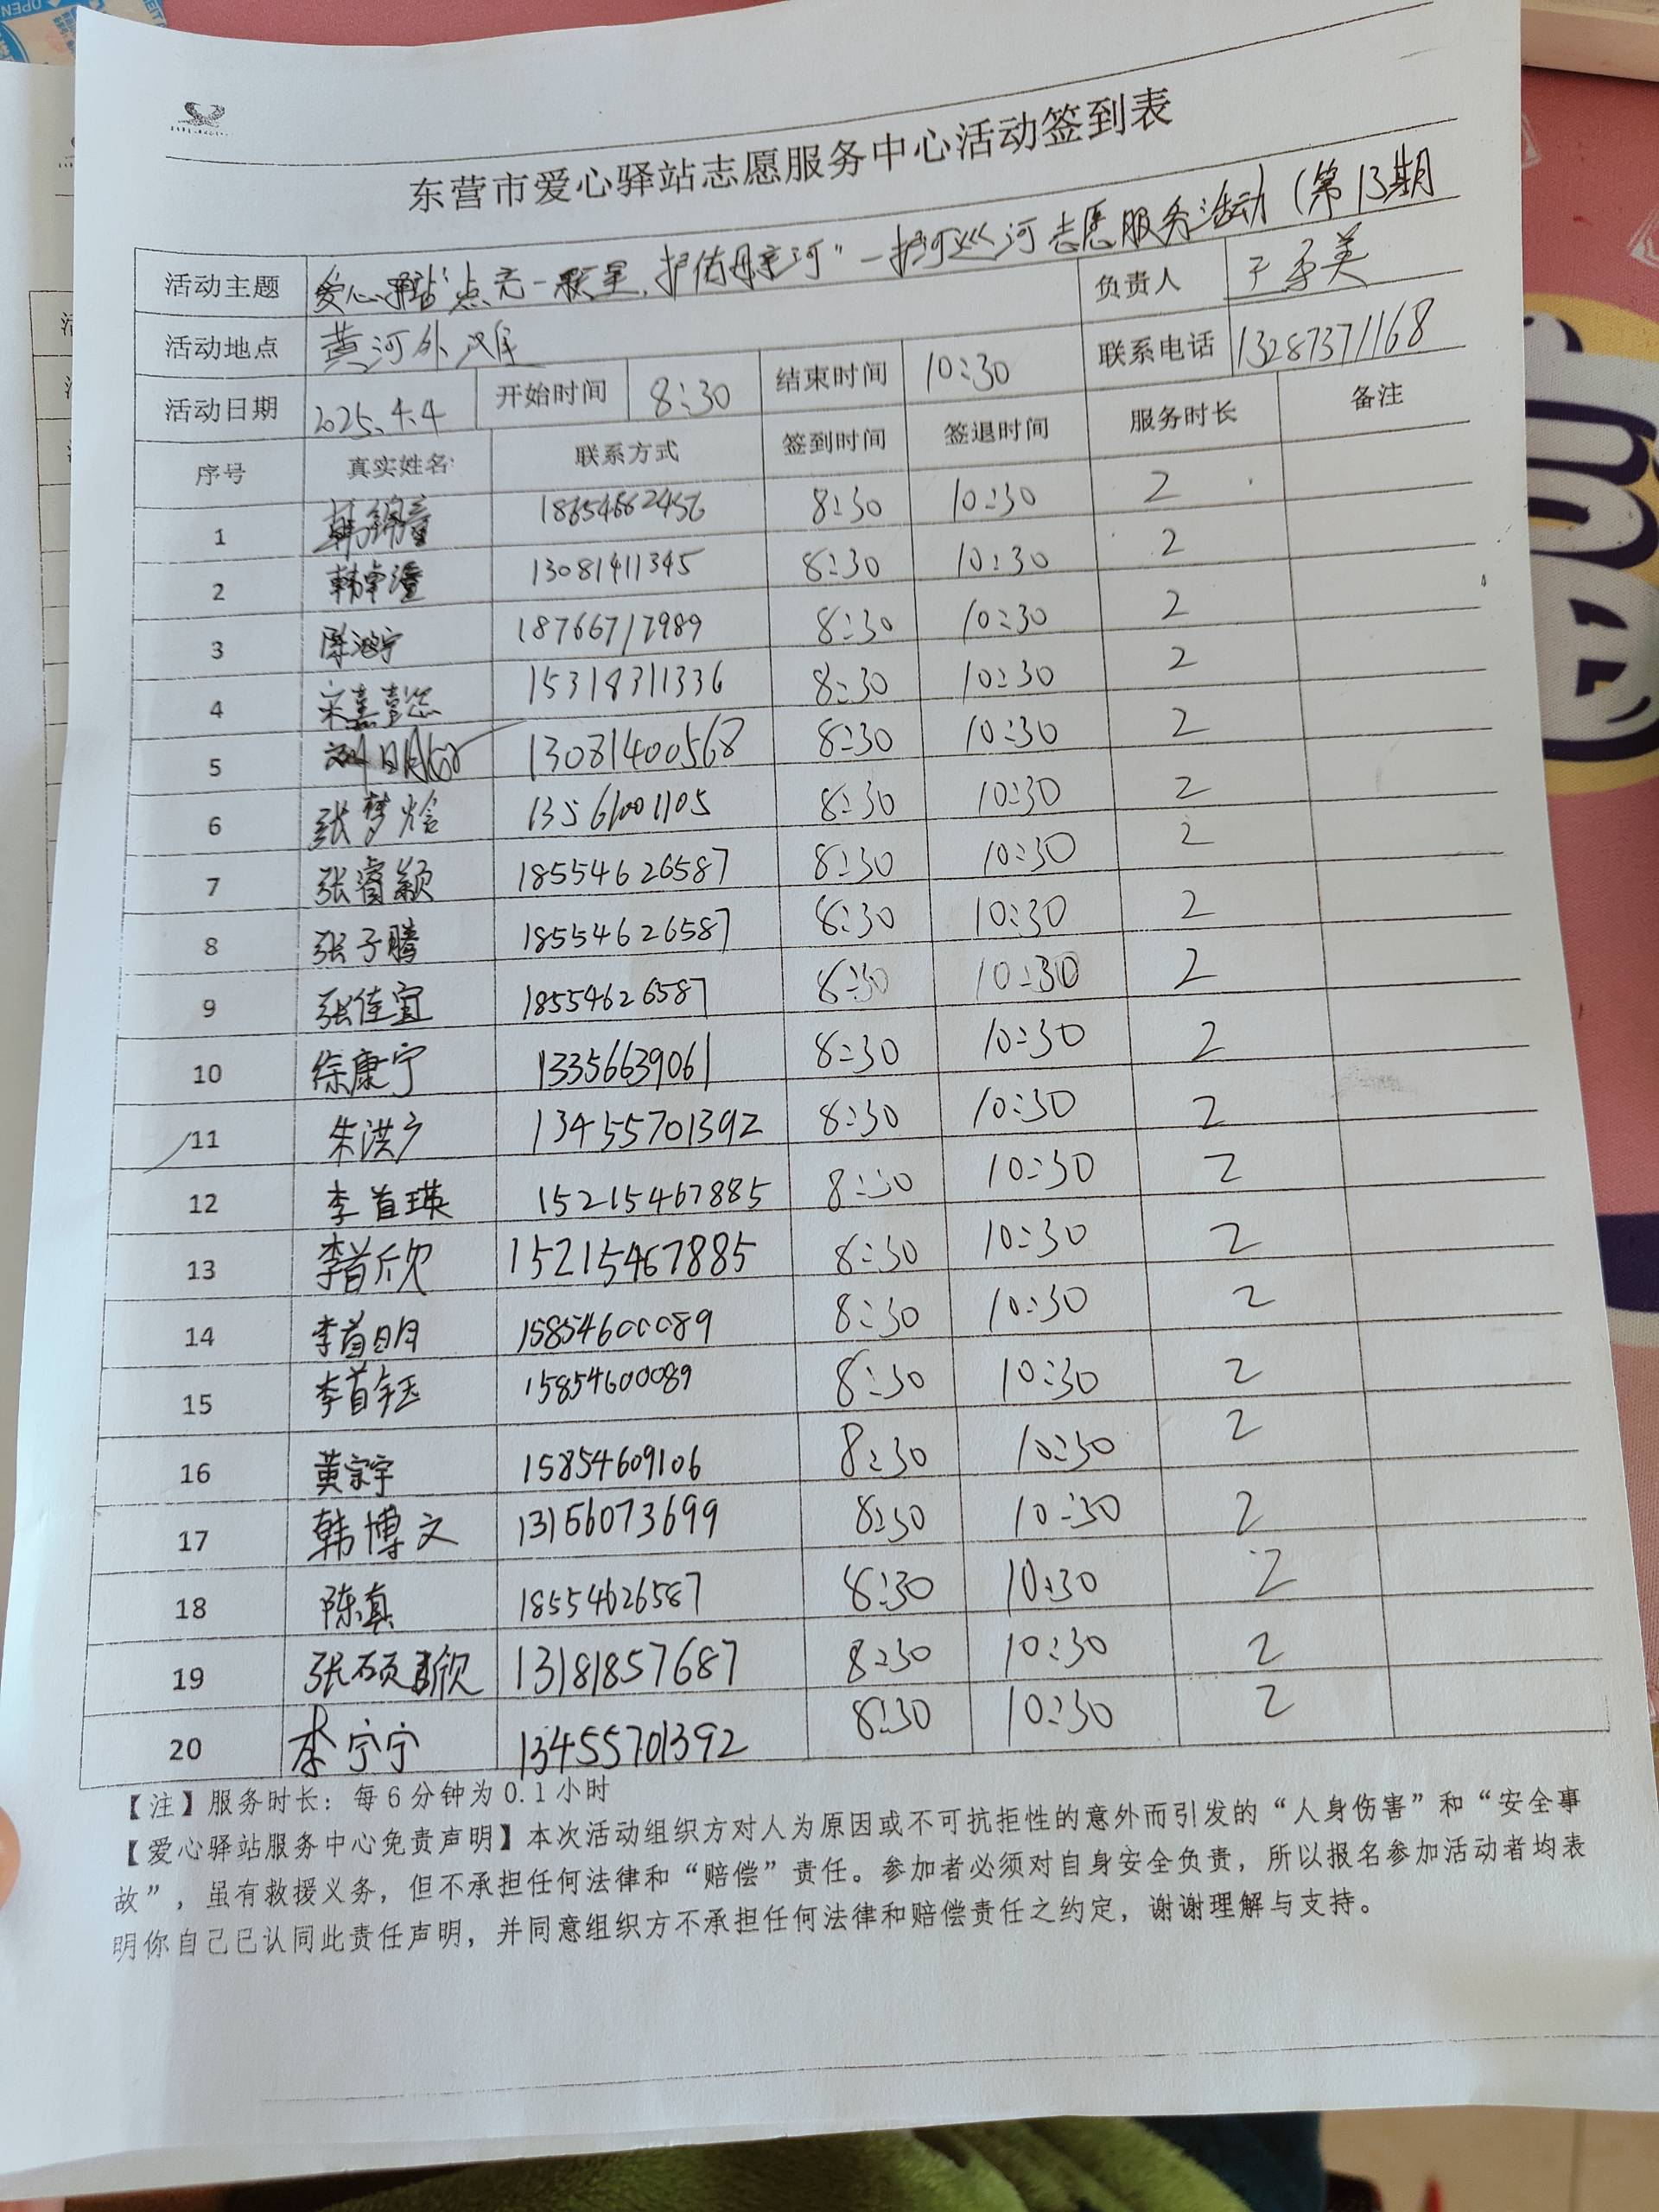 东营市爱心驿站志愿服务中心活动签到表
活动主题 爱心驿站"点亮一颗星，护佑母亲河"—护河巡河志愿服务活动（第13期
负责人 美
活动地点 黄河外滩
联系电话 13287371168
活动日期 2025.4.4 开始时间 8:30 结束时间 10:30
序号 真实姓名 联系方式 签到时间 签退时间 服务时长 备注
1 韩锦 18654662456 8:30 10:30 2
2 韩卓潼 13081411345 8:30 10:30 2
3 宁 18766717989 8:30 10:30 2
4 宋嘉 15318311336 8:30 10:30 2
5 刘明 13081400568 8:30 10:30 2
6 张梦焓 13561001105 8:30 10:30 2
7 张睿颖 18554626587 8:30 10:30 2
8 张子腾 18554626587 8:30 10:30 2
9 张佳宜 18554626587 8:30 10:30 2
10 徐康宁 13356639061 8:30 10:30 2
11 朱洪广 13455701392 8:30 10:30 2
12 李首瑛 15215467885 8:30 10:30 2
13 李首欣 15215467885 8:30 10:30 2
14 李首明 15854600089 8:30 10:30 2
15 李首钰 15854600089 8:30 10:30 2
16 黄宗宇 15854609106 8:30 10:30 2
17 韩博文 13156073699 8:30 10:30 2
18 陈真 18554626587 8:30 10:30 2
19 张硕欣 13181857687 8:30 10:30 2
20 李宁宁 13455701392 8:30 10:30 2
【注】服务时长：每6分钟为0.1小时
【爱心驿站服务中心免责声明】本次活动组织方对人为原因或不可抗拒性的意外而引发的“人身伤害”和“安全事
故”，虽有救援义务，但不承担任何法律和“赔偿”责任。参加者必须对自身安全负责，所以报名参加活动者均表
明你自己已认同此责任声明，并同意组织方不承担任何法律和赔偿责任之约定，谢谢理解与支持。